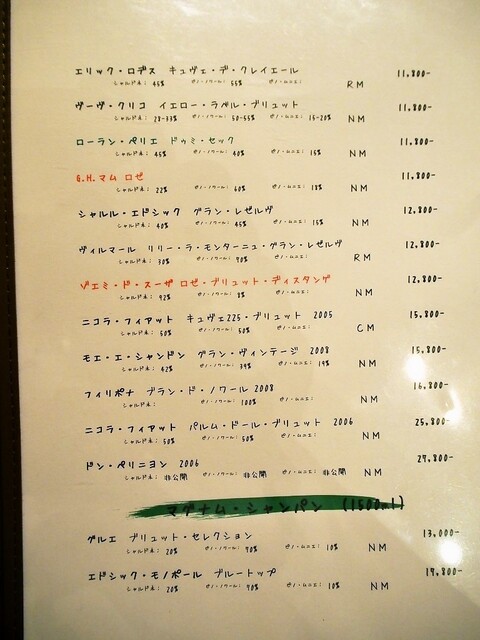 エリック・ロデス キュヴェ・デ・クレイエール 11,800-
シャルドネ: 45% ピノ・ノワール: 55% RM
ヴーヴ・クリコ イエロー・ラベル・ブリュット 11,800-
シャルドネ: 28-33% ピノ・ノワール: 50-55% ピノ・ムニエ: 15-20% NM
ローラン・ペリエ ドゥミ・セック 11,800-
シャルドネ: 45% ピノ・ノワール: 40% ピノ・ムニエ: 15% NM
G.H.マム ロゼ 11,800-
シャルドネ: 22% ピノ・ノワール: 60% ピノ・ムニエ: 18% NM
シャルル・エドシック グラン・レゼルヴ 12,800-
シャルドネ: 40% ピノ・ノワール: 45% ピノ・ムニエ: 15% NM
ヴィルマール リリー・ラ・モンターニュ・グラン・レゼルヴ 12,800-
シャルドネ: 30% ピノ・ノワール: 70% ピノ・ムニエ: RM
ゾエミ・ド・スーザ ロゼ・ブリュット・ディスタンゲ 12,800-
シャルドネ: 92% ピノ・ノワール: 8% ピノ・ムニエ: NM
ニコラ・フィアット キュヴェ225・ブリュット 2005 15,800-
シャルドネ: 50% ピノ・ノワール: 50% ピノ・ムニエ: CM
モエ・エ・シャンドン グラン・ヴィンテージ 2008 15,800-
シャルドネ: 42% ピノ・ノワール: 39% ピノ・ムニエ: 19% NM
フィリポナ ブラン・ド・ノワール 2008 16,800-
シャルドネ: ピノ・ノワール: 100% ピノ・ムニエ: NM
ニコラ・フィアット パルム・ドール・ブリュット 2006 25,800-
シャルドネ: 50% ピノ・ノワール: 50% ピノ・ムニエ: NM
ドン・ペリニヨン 2006 29,800-
シャルドネ: 非公開 ピノ・ノワール: 非公開 ピノ・ムニエ: 非公開 NM
マグナム・シャンパン (1500ml)
グルエ ブリュット・セレクション 13,000-
シャルドネ: 20% ピノ・ノワール: 70% ピノ・ムニエ: 10% NM
エドシック・モノポール ブルートップ 19,800-
シャルドネ: 20% ピノ・ノワール: 70% ピノ・ムニエ: 10% NM